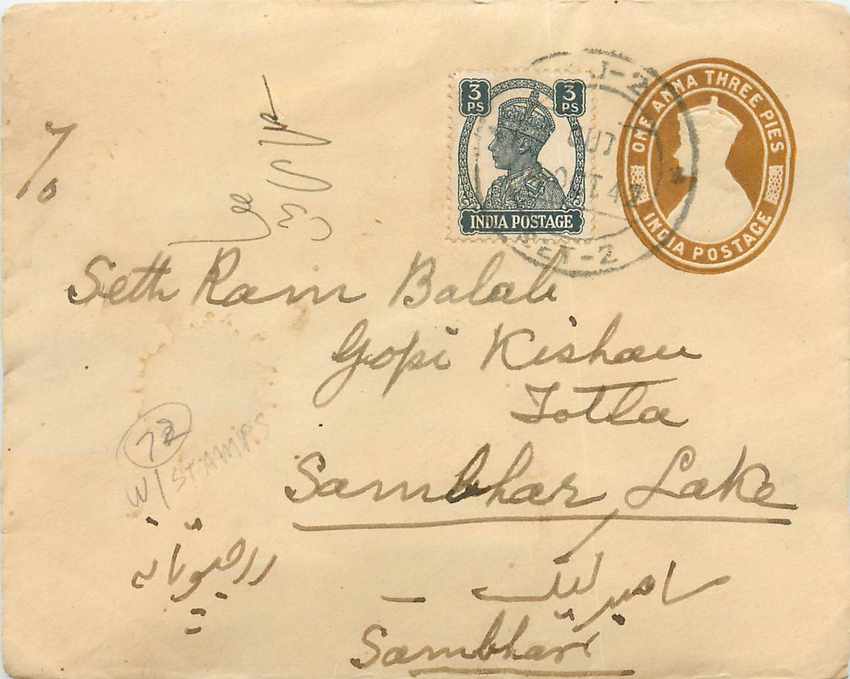 3 PS 3 PS
INDIA POSTAGE
ONE ANNA THREE PIES
INDIA POSTAGE
OUT
-2
Seth Ram
Gopi Kishan
Totla
Sambhar Lake
72
W/STAMPS
سامبر لیک - راجپوتانہ
Sambhar